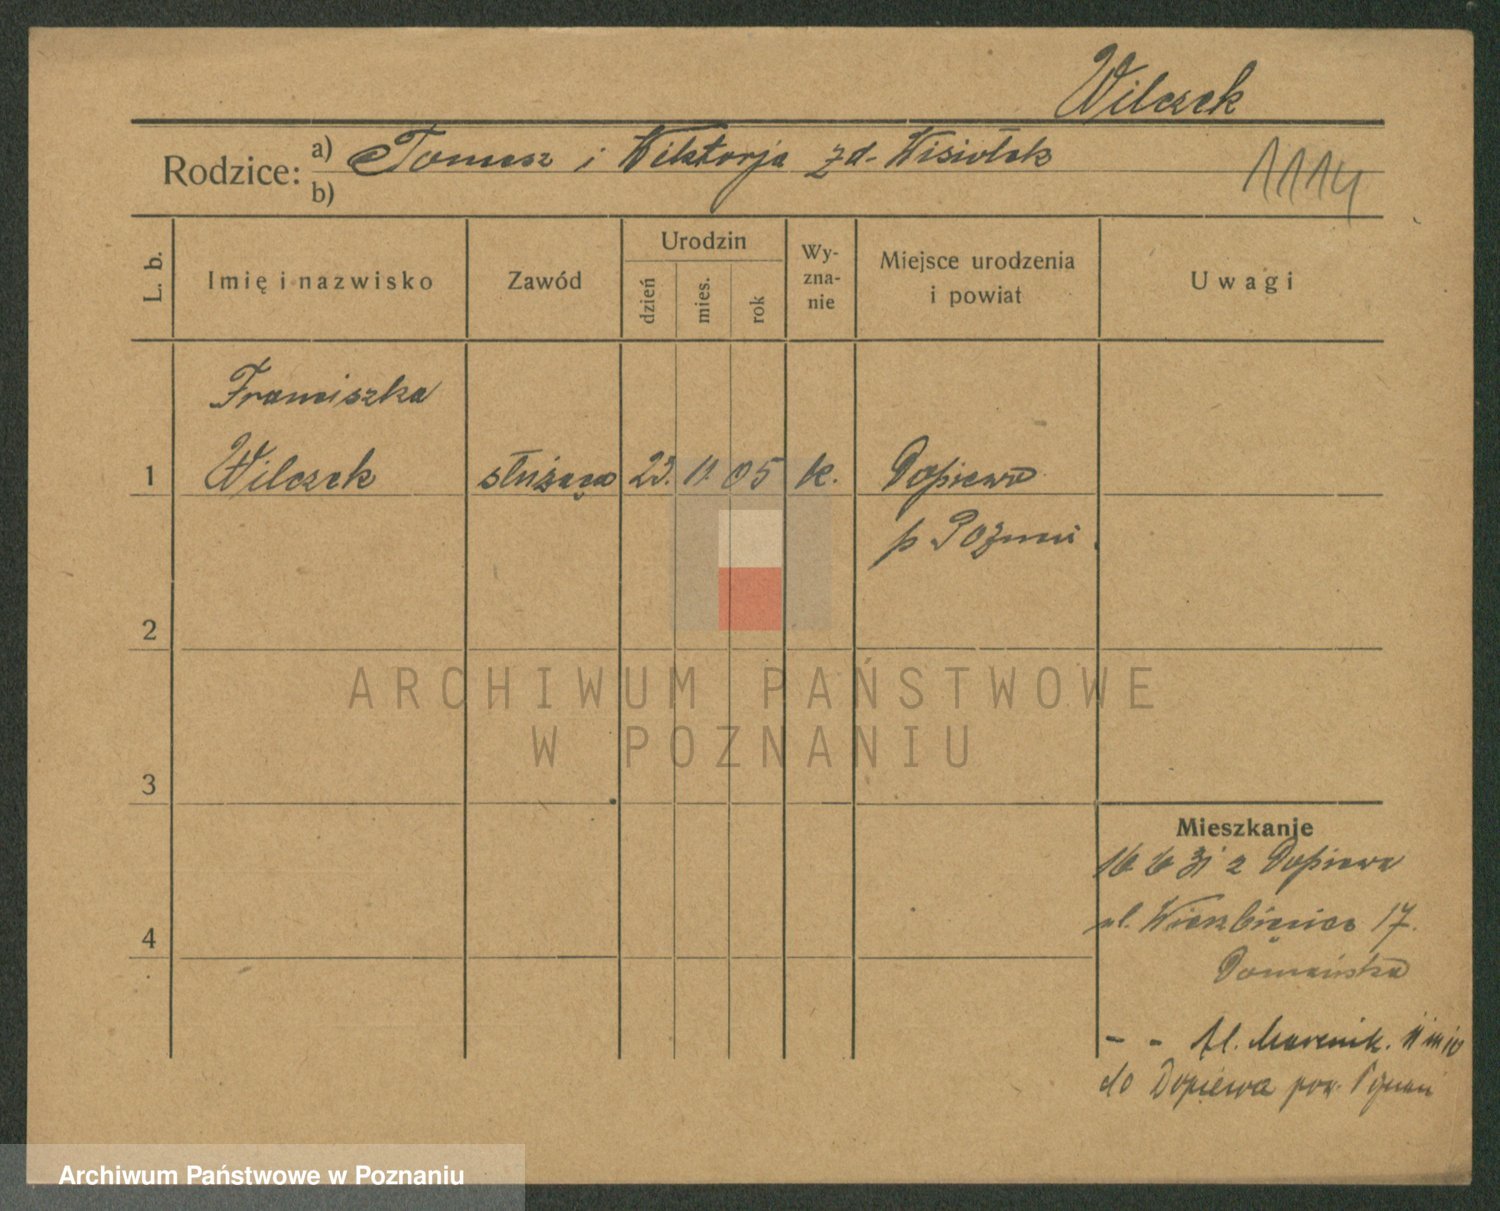 Wilczek
Rodzice: a) Tomasz i Wiktorja zd. Wisiołek
b)
1114
L. b.
Imię i nazwisko
Zawód
Urodzin
dzień
mies.
rok
Wy-
zna-
nie
Miejsce urodzenia
i powiat
Uwagi
Franciszka
1 Wilczek służąca 23. 11. 05 k. Dopiewo
p Poznań.
2
ARCHIWUM PAŃSTWOWE
W POZNANIU
3
Mieszkanie
16 6 31 z Dopiewa
ul. Wierzbięcice 17.
4
Domańska
- - Pl.
do Dopiewa pow. Poznań
Archiwum Państwowe w Poznaniu